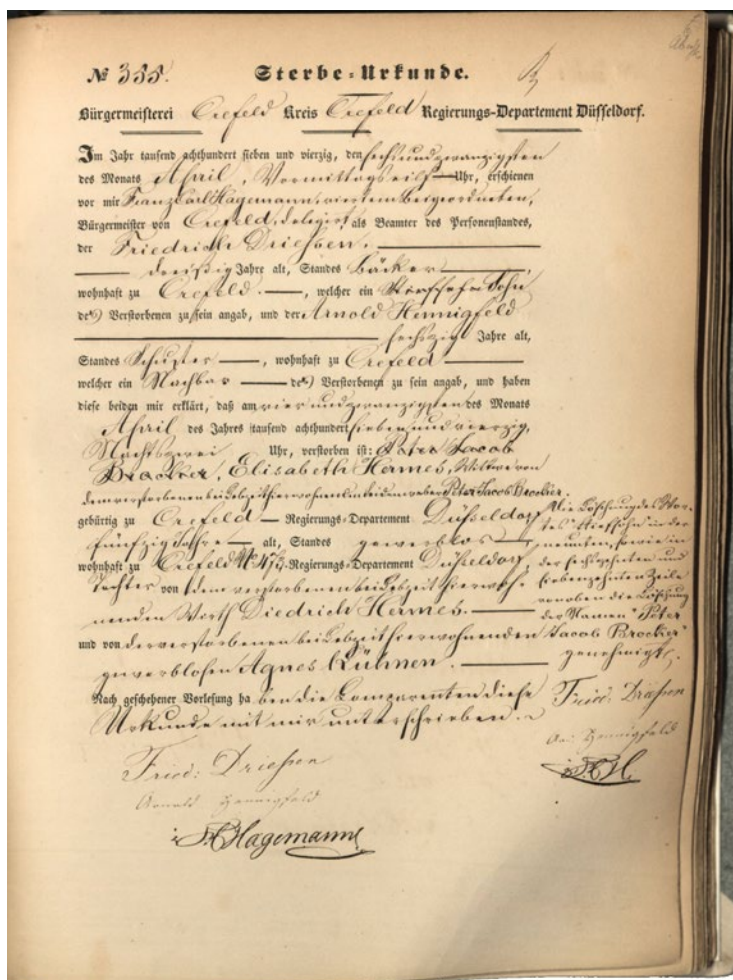 № 355. Sterbe-Urkunde.
Bürgermeisterei Crefeld Kreis Crefeld Regierungs-Departement Düsseldorf.
Im Jahr tausend achthundert sieben und vierzig, den sechsundzwanzigsten
des Monats April, Vormittags eilf Uhr, erschienen
vor mir Franz Carl Hagemann, viertem Beigeordneten,
Bürgermeister von Crefeld, delegirt, als Beamter des Personenstandes,
der Friedrich Drießen,
dreißig Jahre alt, Standes Bäcker,
wohnhaft zu Crefeld, welcher ein Stiefsohn Sohn
der*) Verstorbenen zu sein angab, und der Arnold Hennigfeld
sechszig Jahre alt,
Standes Schuster, wohnhaft zu Crefeld
welcher ein Nachbar der*) Verstorbenen zu sein angab, und haben
diese beiden mir erklärt, daß am vier und zwanzigsten des Monats
April des Jahres tausend achthundert sieben und vierzig,
Nachts zwei Uhr, verstorben ist: Peter Jacob
Brocker, Elisabeth Hermes, Wittwe von
dem verstorbenen bei Lebzeit hier wohnenden Peter Jacob Brocker.
gebürtig zu Crefeld Regierungs-Departement Düsseldorf
fünfzig Jahre alt, Standes gewerblos
wohnhaft zu Crefeld Regierungs-Departement Düsseldorf,
Tochter von dem verstorbenen bei Lebzeit hier woh-
nenden Wirth Diedrich Hermes.
und von der verstorbenen bei Lebzeit hier wohnenden
gewerblosen Agnes Kühnen.
Nach geschehener Vorlesung haben die Comparenten diese
Urkunde mit mir unterschrieben.
Fried: Driessen
Arnold Hennigfeld
Hagemann
Die Löschung des Wor-
tes "Stiefsohn" in der
neunten, sowie in
der sechszehnten und
siebenzehnten Zeile
von oben die Löschung
der Namen "Peter
Jacob Brocker"
genehmigt.
Fried: Driessen
Ar: Hennigfeld